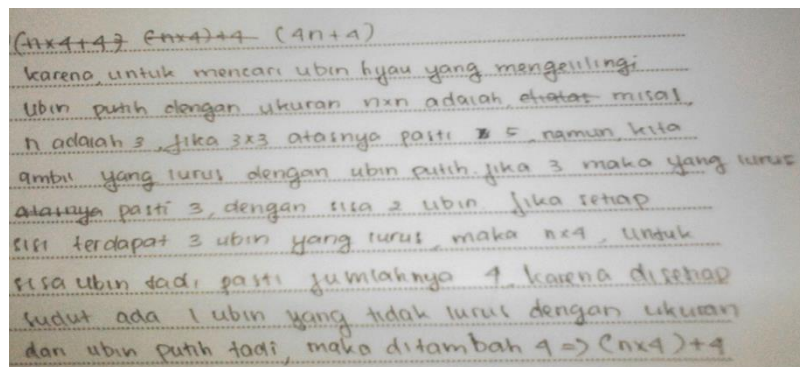 (4n+4)
karena untuk mencari ubin hijau yang mengelilingi
ubin putih dengan ukuran nxn adalah, misal
n adalah 3, jika 3x3 atasnya pasti 5, namun kita
ambil yang lurus dengan ubin putih. jika 3 maka yang lurus
pasti 3, dengan sisa 2 ubin. jika setiap
sisi terdapat 3 ubin yang lurus, maka nx4, untuk
sisa ubin tadi pasti jumlahnya 4, karena disetiap
sudut ada 1 ubin yang tidak lurus dengan ukuran
dan ubin putih tadi, maka ditambah 4 => (nx4)+4